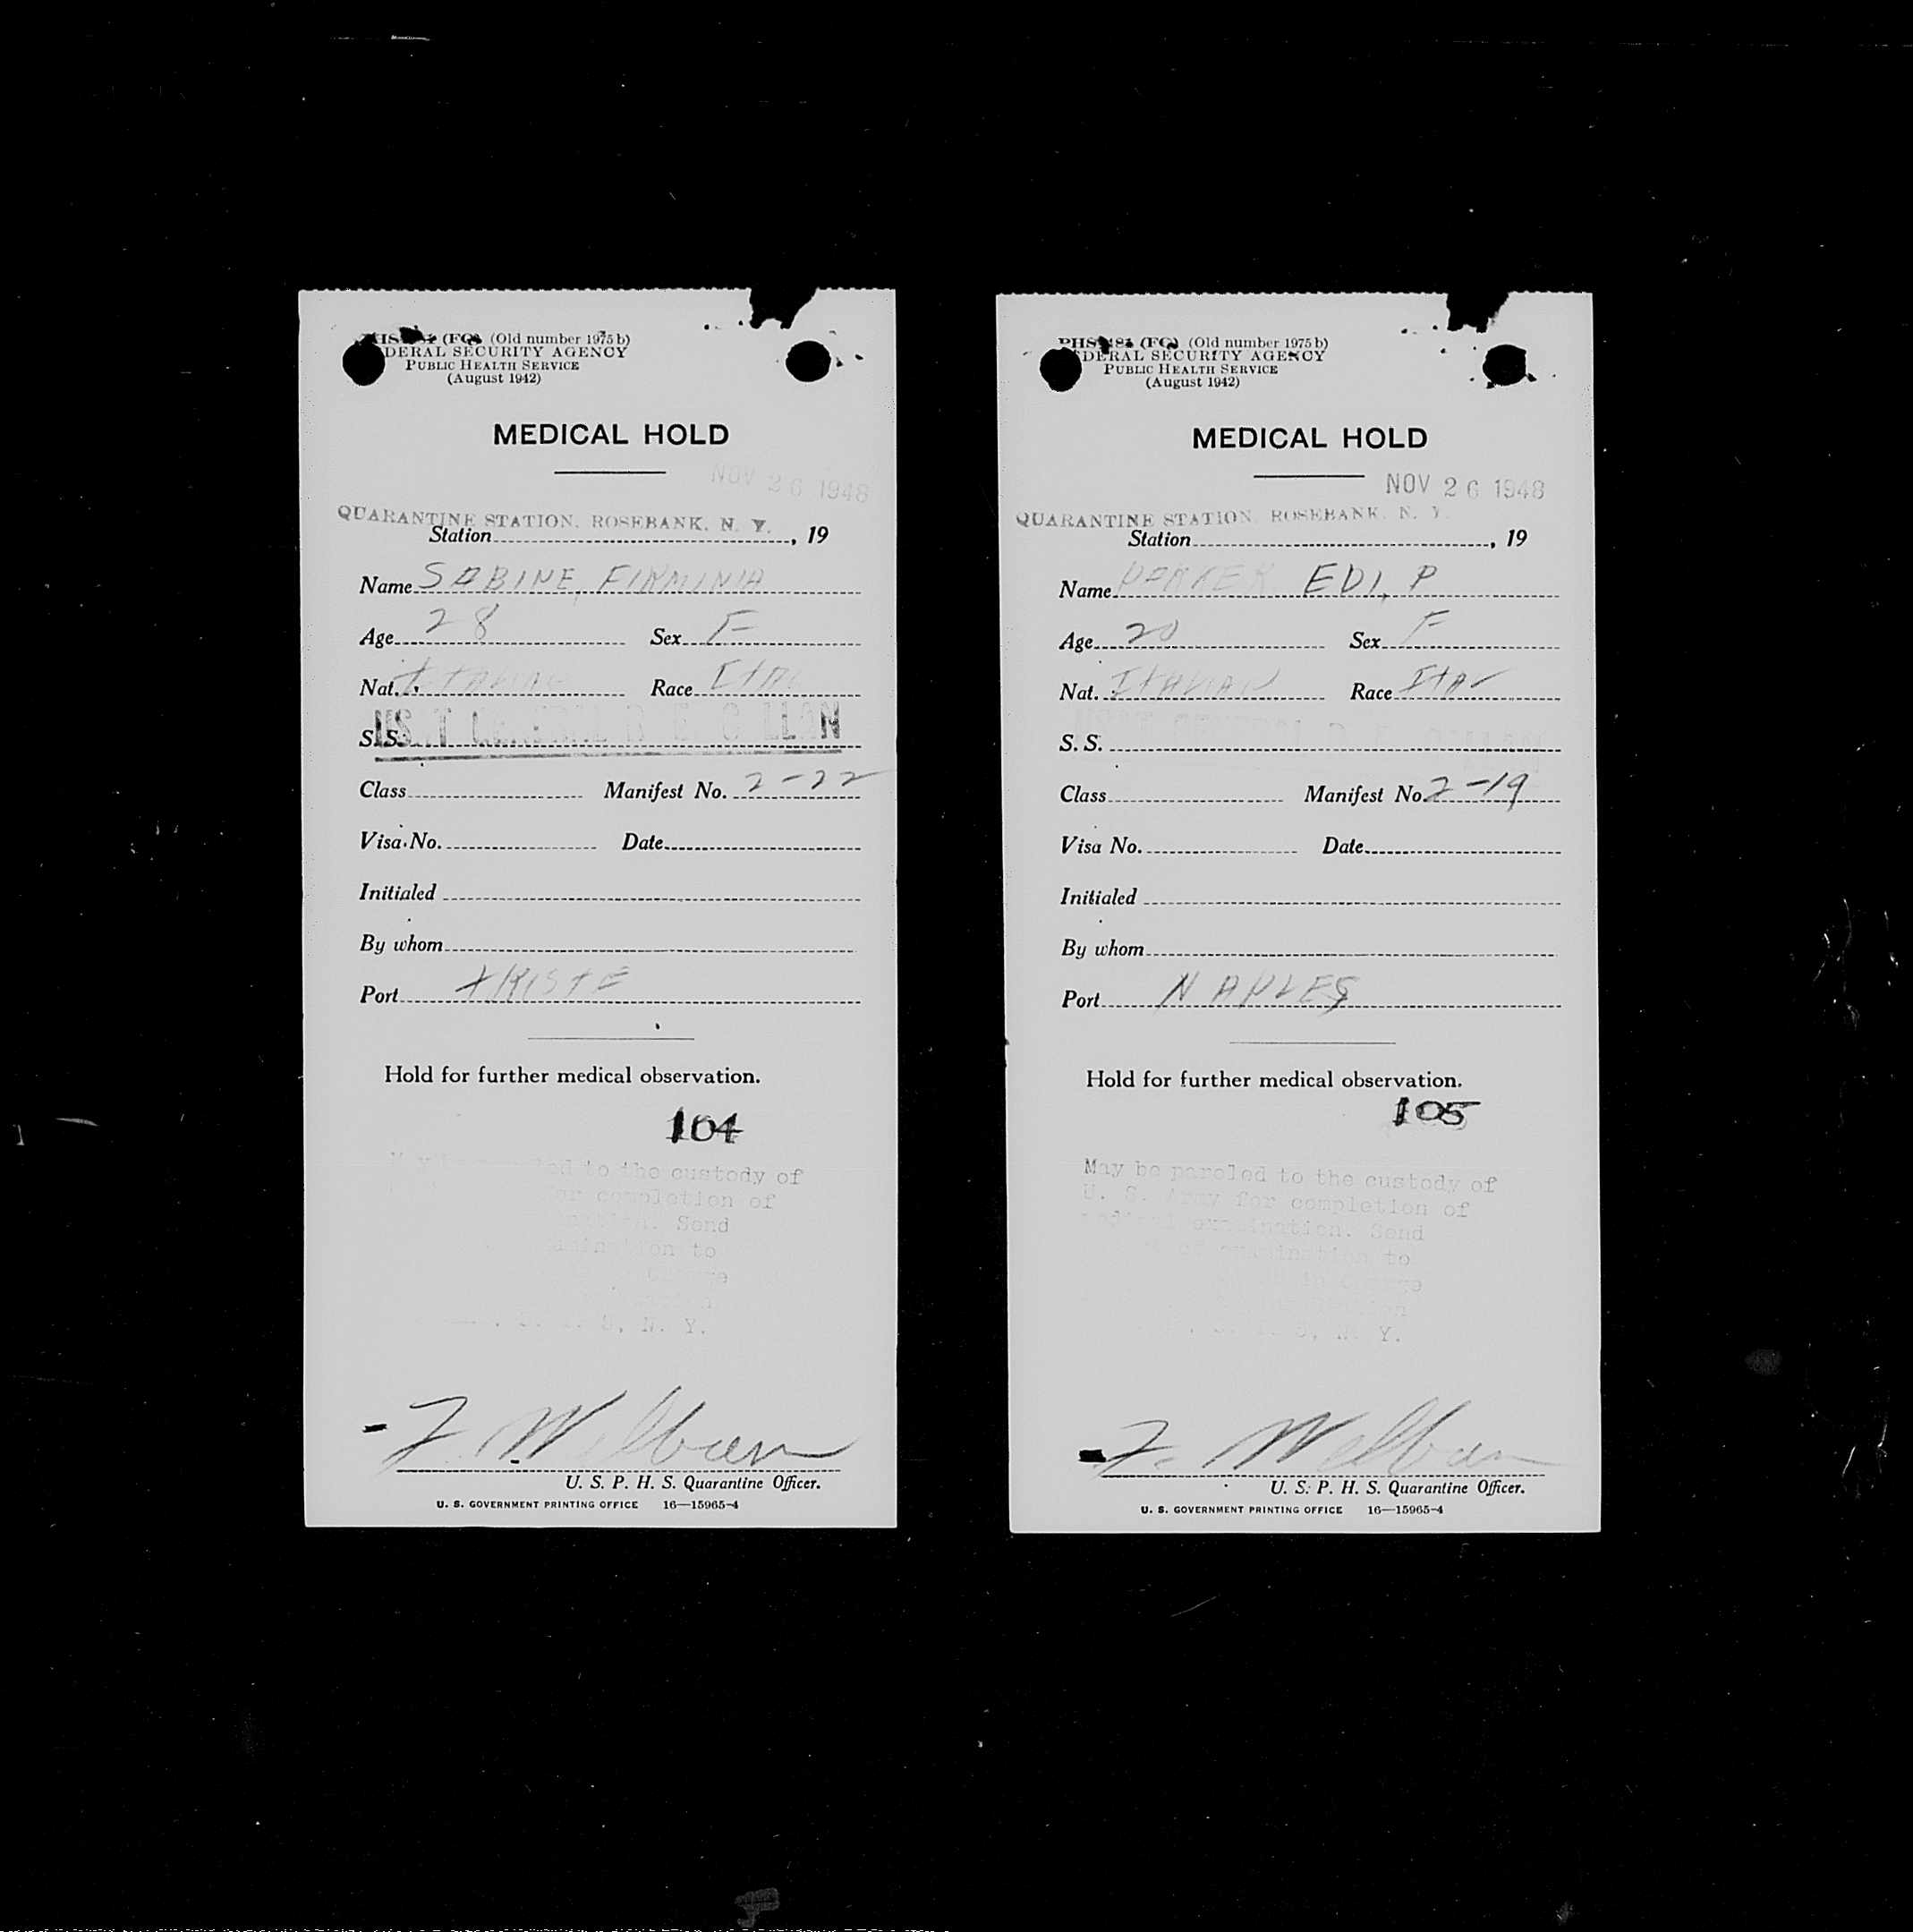 (Old number 1975b)
DERAL SECURITY AGENCY
PUBLIC HEALTH SERVICE
(August 1942)
MEDICAL HOLD
NOV 26 1948
QUARANTINE STATION, ROSEBANK, N. Y.
Station , 19
Name SABINE, FIRMINIA
Age 28 Sex F
Nat. Race
S.S.
Class Manifest No. 2-22
Visa No. Date
Initialed
By whom
Port TRISTE
Hold for further medical observation.
104
to the custody of
completion of
Send
to
N. Y.
U. S. P. H. S. Quarantine Officer.
U. S. GOVERNMENT PRINTING OFFICE 16—15965-4
(Old number 1975b)
DERAL SECURITY AGENCY
PUBLIC HEALTH SERVICE
(August 1942)
MEDICAL HOLD
NOV 26 1948
QUARANTINE STATION, ROSEBANK, N. Y.
Station , 19
Name EDI, P
Age 20 Sex F
Nat. ITALIAN Race ITA
S. S.
Class Manifest No. 2-19
Visa No. Date
Initialed
By whom
Port NAPLES
Hold for further medical observation.
105
May be paroled to the custody of
U. S. Army for completion of
medical examination. Send
examination to
in charge
Y.
U. S. P. H. S. Quarantine Officer.
U. S. GOVERNMENT PRINTING OFFICE 16—15965-4